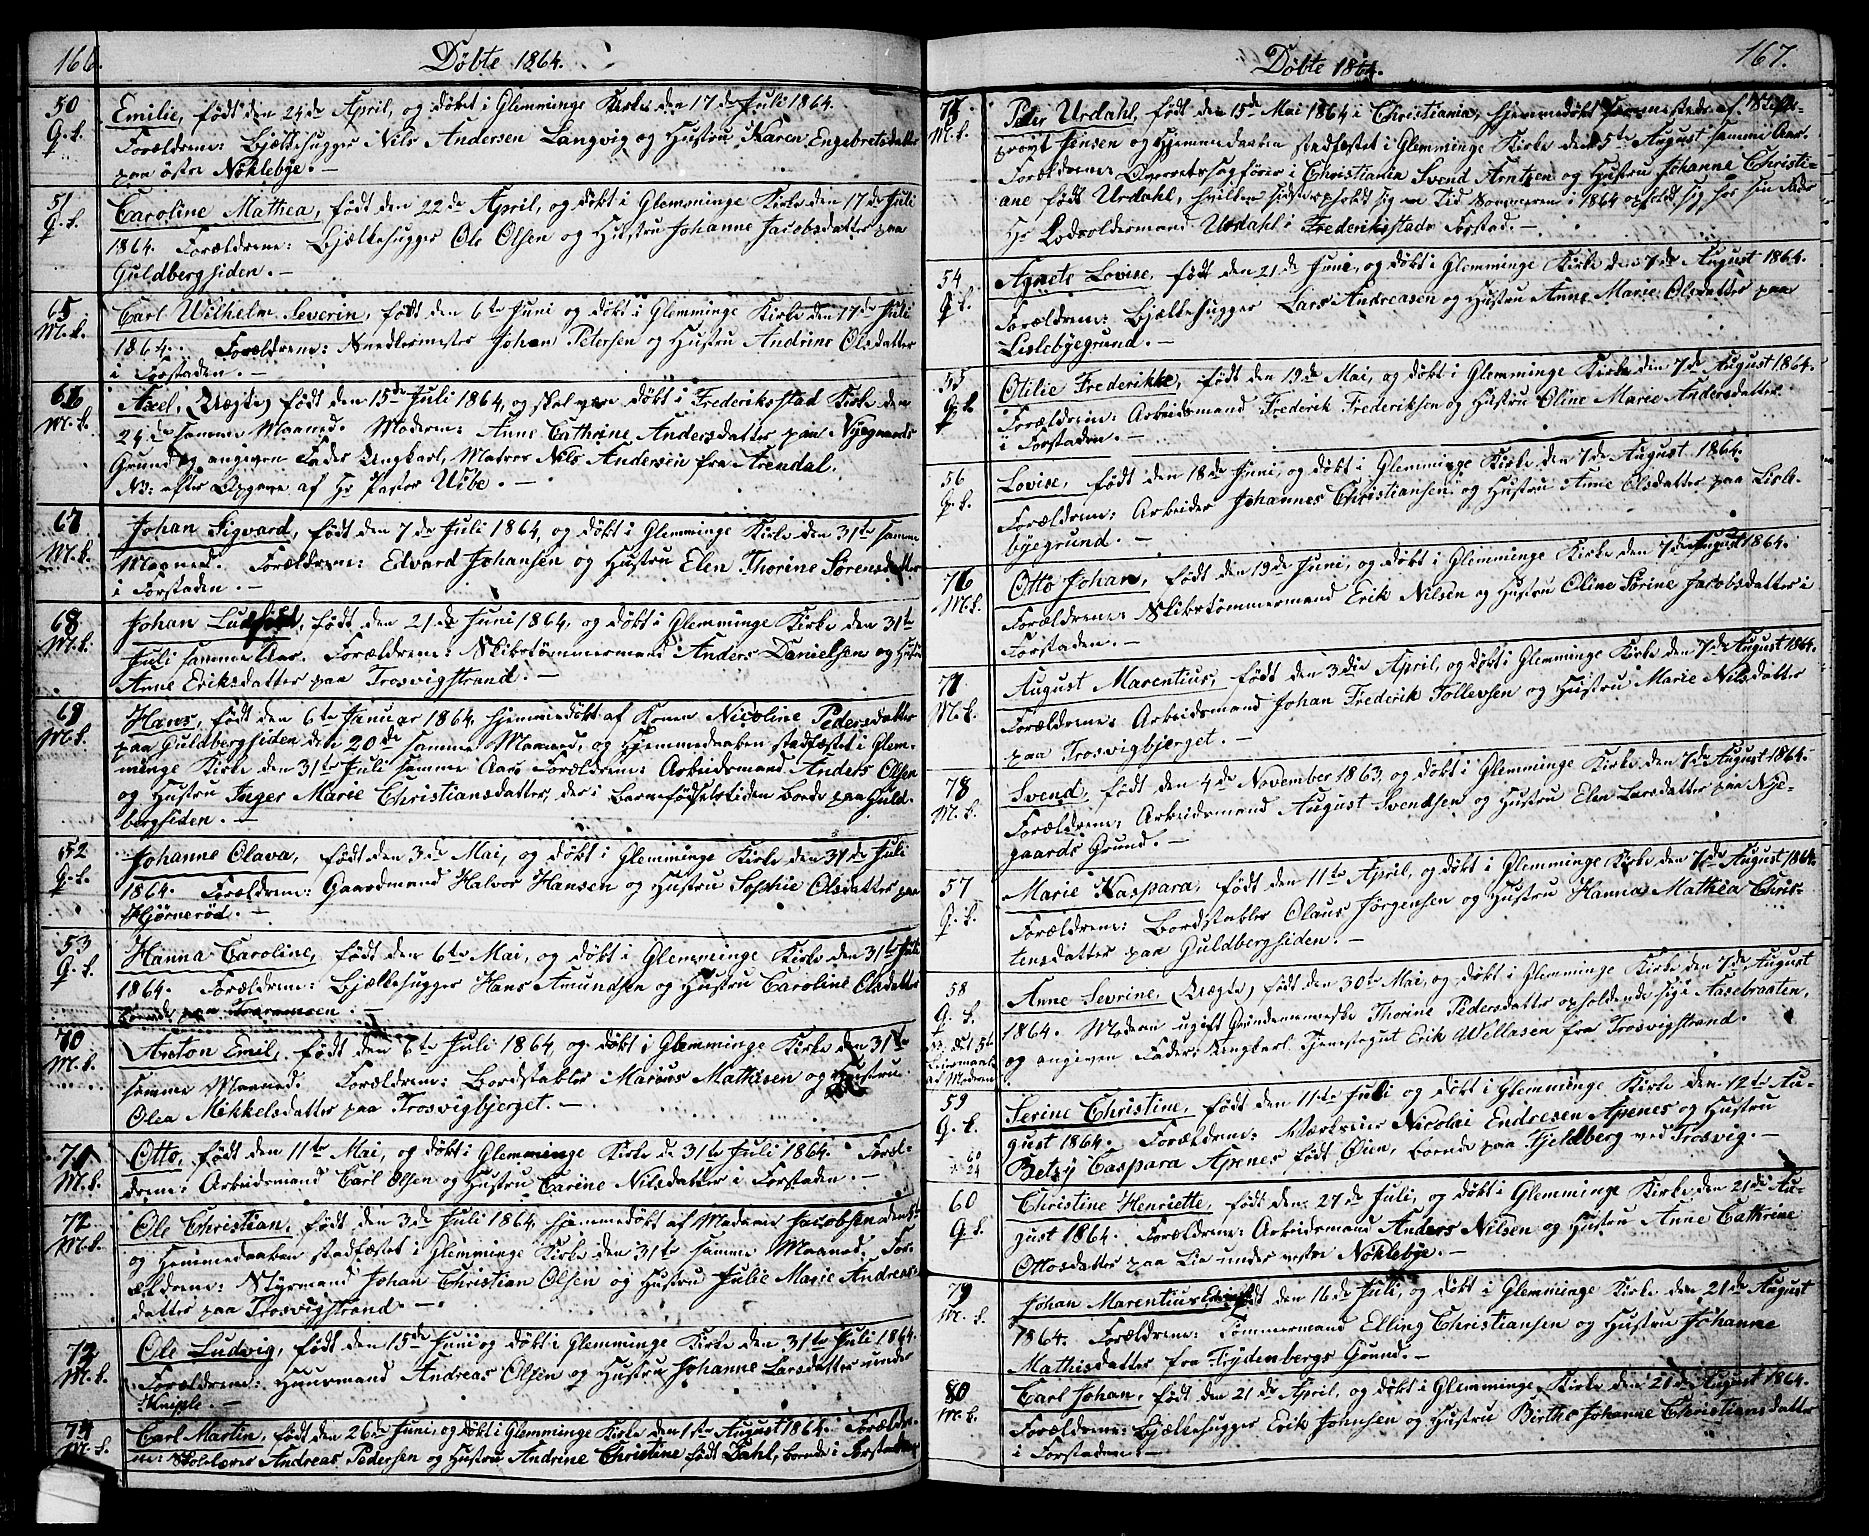 166.
Døbte 1864.
50 Emilie, født den 24de April, og døbt i Glemminge Kirke den 17de Juli 1864.
Q.k. Forældrene: Bjælkehugger Nils Andersen Langvig og Hustru Karen Engebretsdatter
paa østre Nøklebye. —
51 Caroline Mathea, født den 22de April, og døbt i Glemminge Kirke den 17de Juli
Q.k. 1864. Forældrene: Bjælkehugger Ole Olsen og Hustru Johanne Jacobsdatter paa
Guldbergsiden. —
65 Carl Wilhelm Severin, født den 6te Juni og døbt i Glemminge Kirke den 17de Juli
M.k. 1864. Forældrene: Snedkermester Johan Petersen og Hustru Andrine Olsdatter
i Forstaden. —
66 Axel, (Uægte) født den 15de Juli 1864, og skal være døbt i Frederiksstad Kirke den
M.k. 24de samme Maaned. Moderen: Anne Cathrine Andersdatter paa Nyegaards
Grund og angiven Fader Ungkarl, Matros Nils Andersen fra Arendal.
NB: efter Opgave af Hr Pastor Wibe. —
67 Johan Sigvard, født den 7de Juli 1864, og døbt i Glemminge Kirke den 31te samme
M.k. Maaned. Forældrene: Edvard Johansen og Hustru Elen Thorine Sørensdatter
i Forstaden. —
68 Johan Ludvig, født den 21de Juni 1864, og døbt i Glemminge Kirke den 31te
M.k. Juli samme Aar. Forældrene: Skibstømmermand Anders Danielsen og Hustru
Anne Eriksdatter paa Trosvigstrand. —
69 Hans, født den 6te Januar 1864, hjemmedøbt af Konen Nicoline Pedersdatter
M.k. paa Guldbergsiden den 20de samme Maaned, og Hjemmedaaben stadfæstet i Glem-
minge Kirke den 31te Juli samme Aar. Forældrene: Arbeidsmand Anders Olsen
og Hustru Inger Marie Christiansdatter, der i Barnefødselstiden boede paa Guld-
bergsiden. —
52 Johanne Olava, født den 3de Mai, og døbt i Glemminge Kirke den 31te Juli
Q.k. 1864. Forældrene: Gaardmand Halvor Hansen og Hustru Sophie Olsdatter paa
Hjørnerød. —
53 Hanna Caroline, født den 6te Mai, og døbt i Glemminge Kirke den 31te Juli
Q.k. 1864. Forældrene: Bjælkehugger Hans Amundsen og Hustru Caroline Olsdatter
boende paa Traramoen. —
70 Anton Emil, født den 6te Juli 1864, og døbt i Glemminge Kirke den 31te
M.k. samme Maaned. Forældrene: Bordstabler Marius Mathisen og Hustru
Olea Mikkelsdatter paa Trosvigbjerget. —
71 Otto, født den 11te Mai, og døbt i Glemminge Kirke d. 31te Juli 1864. Foræl-
M.k. drene: Arbeidsmand Carl Olsen og Hustru Carine Nilsdatter i Forstaden. —
72 Ole Christian, født den 3de Juli 1864, hjemmedøbt af Madame Jacobsen den
M.k. og Hjemmedaaben stadfæstet i Glemminge Kirke den 31te samme Maaned. For-
ældrene: Styrmand Johan Christian Olsen og Hustru Julie Marie Andreas-
datter paa Trosvigstrand. —
73 Ole Ludvig, født den 15de Juni og døbt i Glemminge Kirke den 31te Juli 1864.
M.k. Forældrene: Huusmand Andreas Olsen og Hustru Johanne Larsdatter under
Kniple. —
74 Carl Martin, født den 26de Juni, og døbt i Glemminge Kirke den 1ste August 1864. Forældre-
M.k. ne: Skolelærer Andreas Pedersen og Hustru Andrine Christine født Dahl, boende i Forstaden
167.
Døbte 1864.
75 Peter Urdahl, født den 15de Mai 1864 i Christiania, hjemmedøbt sammesteds af
M.k. provst Jensen og Hjemmedaaben stadfæstet i Glemminge Kirke den 5te August samme Aar.
Forældrene: Overretssagfører i Christiania Svend Arntzen og Hustru Johanne Christi-
ane født Urdahl, hvilken sidste opholdt sig en Tid Sommeren i 1864 opholdt sig hos sin Fader
Hr Lodsoldermand Urdahl i Frederiksstads Forstad. —
54 Agnete Lovise, født den 21de Juni, og døbt i Glemminge Kirke den 7de August 1864.
Q.k. Forældrene: Bjælkehugger Lars Andreasen og Hustru Anne Marie Olsdatter paa
Lislebyegrund. —
55 Otilie Frederikke, født den 19de Mai, og døbt i Glemminge Kirke den 7de August 1864.
Q.k. Forældrene: Arbeidsmand Frederik Frederiksen og Hustru Oline Marie Andersdatter
i Forstaden. —
56 Lovise, født den 18de Juni, og døbt i Glemminge Kirke den 7de August 1864.
Q.k. Forældrene: Arbeider Johannes Christiansen og Hustru Anne Olsdatter paa Lisle-
byegrund. —
76 Otto Johan, født den 19de Juni, og døbt i Glemminge Kirke den 7de August 1864.
M.k. Forældrene: Skibstømmermand Erik Nilsen og Hustru Oline Sorine Jacobsdatter i
Forstaden. —
77 August Marentius, født den 3die April, og døbt i Glemminge Kirke den 7de August 1864.
M.k. Forældrene: Arbeidsmand Johan Frederik Tollevsen og Hustru Marie Nilsdatter
paa Trosvigbjerget. —
78 Svend, født den 4de November 1863, og døbt i Glemminge Kirke den 7de August 1864.
M.k. Forældrene: Arbeidsmand August Svendsen og Hustru Elen Larsdatter paa Nye-
gaards Grund. —
57 Marie Kaspara, født den 11te April, og døbt i Glemminge Kirke den 7de August 1864.
Q.k. Forældrene: Bordstabler Olaus Jørgensen og Hustru Hanna Mathea Chris-
tensdatter paa Guldbergsiden. —
58 Anne Sevrine, (Uægte) født den 30te Mai, og døbt i Glemminge Kirke den 7de August
Q.k. 1864. Moderen ugift Qvindemenneske Thorine Pedersdatter opholdende sig i Aasebraaten,
og angiven Fader: Ungkarl Tjenestegut Erik Willasen fra Trosvigstrand.
Leiermaal
af Moderen
59 Serine Christine, født den 11te Juli og døbt i Glemminge Kirke den 12te Au-
Q.k. gust 1864. Forældrene: Værtseier Nicolai Endresen Apenes og Hustru
Betzy Caspara Apenes født Øien, boende paa Fjeldberg ved Trosvig. —
60
24
60 Christine Henriette, født den 27de Juli, og døbt i Glemminge Kirke den 21de Au-
Q.k. gust 1864. Forældrene: Arbeidsmand Anders Nilsen og Hustru Anne Cathrine
Ottosdatter paa Lie under vestre Nøklebye. —
79 Johan Marentius Edvin, født den 16de Juli, og døbt i Glemminge Kirke den 21de August
M.k. 1864. Forældrene: Tømmermand Elling Christiansen og Hustru Johanne
Mathisdatter fra Frydenbergs Grund. —
80 Carl Johan, født den 21de April, og døbt i Glemminge Kirke den 21de August 1864.
M.k. Forældrene: Bjælkehugger Erik Johnsen og Hustru Birthe Johanne Christiansdatter
i Forstaden. —